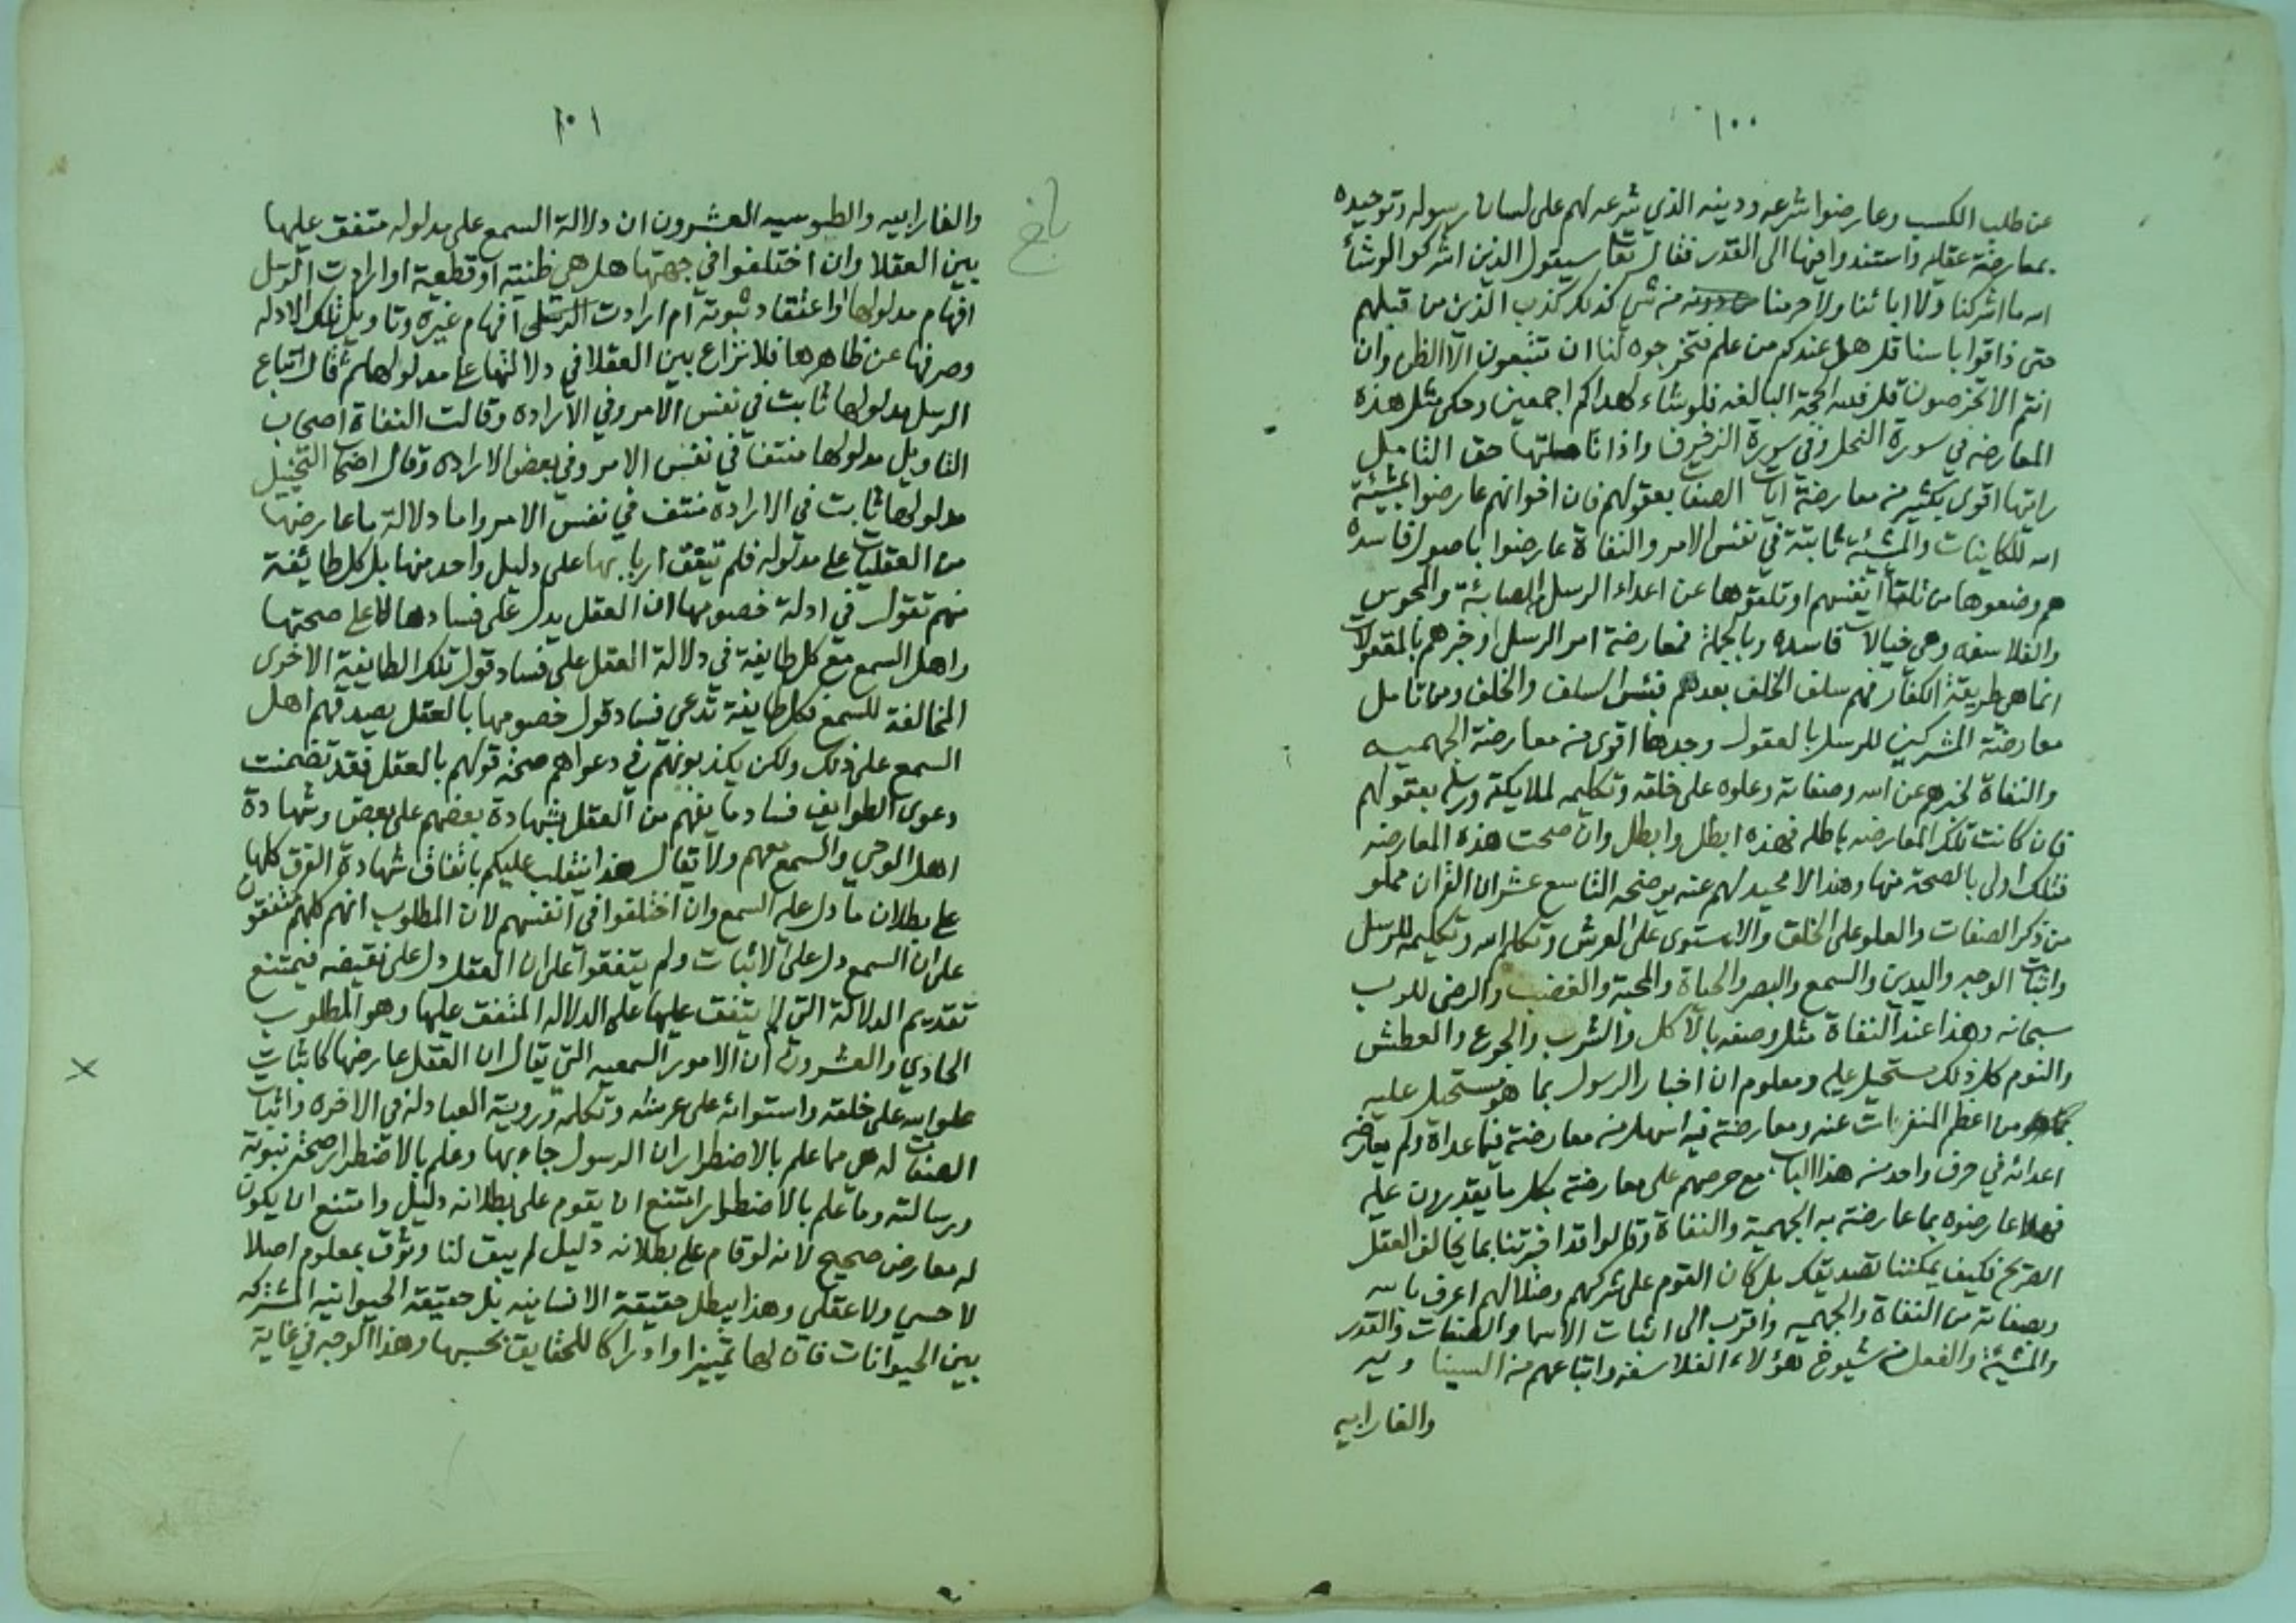 ١٠٠
عن طلب الكسب وعارضوا شرعه ودينه الذي شرعه لهم على لسان رسوله وتوحيده
بمعارضة عقليه واستندوا فيها الى القدر فقال تعا سيقول الذين اشركوا لو شاء
الله ما اشركنا ولا اباءنا ولا حرمنا من شي كذلك كذب الذين من قبلهم
حتى ذاقوا باسنا قل هل عندكم من علم فتخرجوه لنا ان تتبعون الا الظن وان
انتم الا تخرصون قل فلله الحجة البالغه فلو شاء لهداكم اجمعين وحكى مثل هذه
المعارضه في سورة النحل وفي سورة الزخرف واذا تاملتها حق التامل
رايتها اقوى بكثير من معارضة ايات الصفات بعقولهم فان اخوانهم عارضوا بمشيئة
الله للكاينات والمشيئة ثابتة في نفس الامر والنفاة عارضوا باصول فاسده
هم وضعوها من تلقا انفسهم او تلقوها عن اعداء الرسل الصابئة والمجوس
والفلاسفه وهي خيالات فاسده وبالجملة فمعارضة امر الرسل او خبرهم بالمعقولات
انما هي طريقة الكفار فهم سلف الخلف بعدهم فبئس السلف والخلف ومن تامل
معارضة المشركين للرسل بالعقول وجدها اقوى من معارضة الجهميه
والنفاة لخبرهم عن الله وصفاته وعلوه على خلقه وتكليمه لملايكته ورسله بعقولهم
فان كانت تلك المعارضه باطله فهذه ابطل وابطل وان صحت هذه المعارضه
فتلك اولى بالصحة منها وهذا لا محيد لهم عنه يوضحه التاسع عشر ان القران مملو
من ذكر الصفات والعلو على الخلق والاستوى على العرش وتكلم الله وتكليمه للرسل
واثبات الوجه واليدين والسمع والبصر والحياة والمحبة والغضب والرضى للرب
سبحانه وهذا عند النفاة مثل وصفه بالاكل والشرب والجوع والعطش
والنوم كل ذلك مستحيل عليه ومعلوم ان اخبار الرسول بما هو مستحيل عليه
من اعظم المنفرات عنه ومعارضته فيه اسهل من معارضته فيما عداه ولم يعارضه
اعدائه في حرف واحد من هذا الباب مع حرصهم على معارضته بكل ما يقدرون عليه
فهلا عارضوه بما عارضته به الجهمية والنفاة وقالوا قد اخبرتنا بما يخالف العقل
الصريح فكيف يمكننا تصديقك بل كان القوم على شركهم وضلالهم اعرف بالله
وبصفاته من النفاة والجهميه واقرب الى اثبات الاسما والصفات والقدر
والمشيئة والفعل من شيوخ هؤلاء الفلاسفه واتباعهم من السينا ويه
والفارابيه
١٠١
والفارابيه والطوسيه العشرون ان دلالة السمع على مدلوله متفق عليها
بين العقلا وان اختلفوا في جهتها هل هي ظنية او قطعية او ارادت الرسل
افهام مدلولها واعتقاد ثبوته ام ارادت الرسل افهام غيره وتاويل تلك الادله
وصرفها عن ظاهرها فلا نزاع بين العقلا في دلالتها على مدلولها ثم قال اتباع
الرسل مدلولها ثابت في نفس الامر وفي الاراده وقالت النفاة اصحاب
التاويل مدلولها منتف في نفس الامر وفي بعض الاراده وقال اصحاب التخييل
مدلولها ثابت في الارادة منتف في نفس الامر واما دلالة ما عارضها
من العقليات على مدلوله فلم يتفق اربابها على دليل واحد منها بل كل طائفة
منهم تقول في ادلة خصومها ان العقل يدل على فسادها لا على صحتها
واهل السمع مع كل طايفة في دلالة العقل على فساد قول تلك الطايفة الاخرى
المخالفة للسمع فكل طايفة تدعى فساد قول خصومها بالعقل يصدقهم اهل
السمع على ذلك ولكن يكذبونهم في دعواهم صحة قولهم بالعقل فقد تضمنت
دعوى الطوايف فساد ما يفهم من العقل بشهادة بعضهم على بعض وشهادة
اهل الوحي والسمع معهم ولا يقال هذا ينقلب عليكم باتفاق شهادة الفرق كلها
على بطلان ما دل عليه السمع وان اختلفوا في انفسهم لان المطلوب انهم كلهم متفقون
على ان السمع دل على الاثبات ولم يتفقوا على ان العقل دل على نقيضه فيمتنع
تقديم الدلالة التي لم يتفق عليها على الدلاله المتفق عليها وهو المطلوب
الحادي والعشرون ان الامور السمعيه التي يقال ان العقل عارضها كاثبات
علو الله على خلقه واستوائه على عرشه وتكلمه وروية العباد له في الاخره واثبات
الصفات له هي مما علم بالاضطرار ان الرسول جاء بها وعلم بالاضطرار صحة نبوته
ورسالته وما علم بالاضطرار امتنع ان يقوم على بطلانه دليل وامتنع ان يكون
له معارض صحيح لانه لو قام على بطلانه دليل لم يبق لنا وثوق بمعلوم اصلا
لا حسي ولا عقلي وهذا يبطل حقيقة الانسانيه بل حقيقة الحيوانيه المشتركه
بين الحيوانات فان لها تمييزا وادراكا للحقايق بحسبها وهذا الوجه في غاية